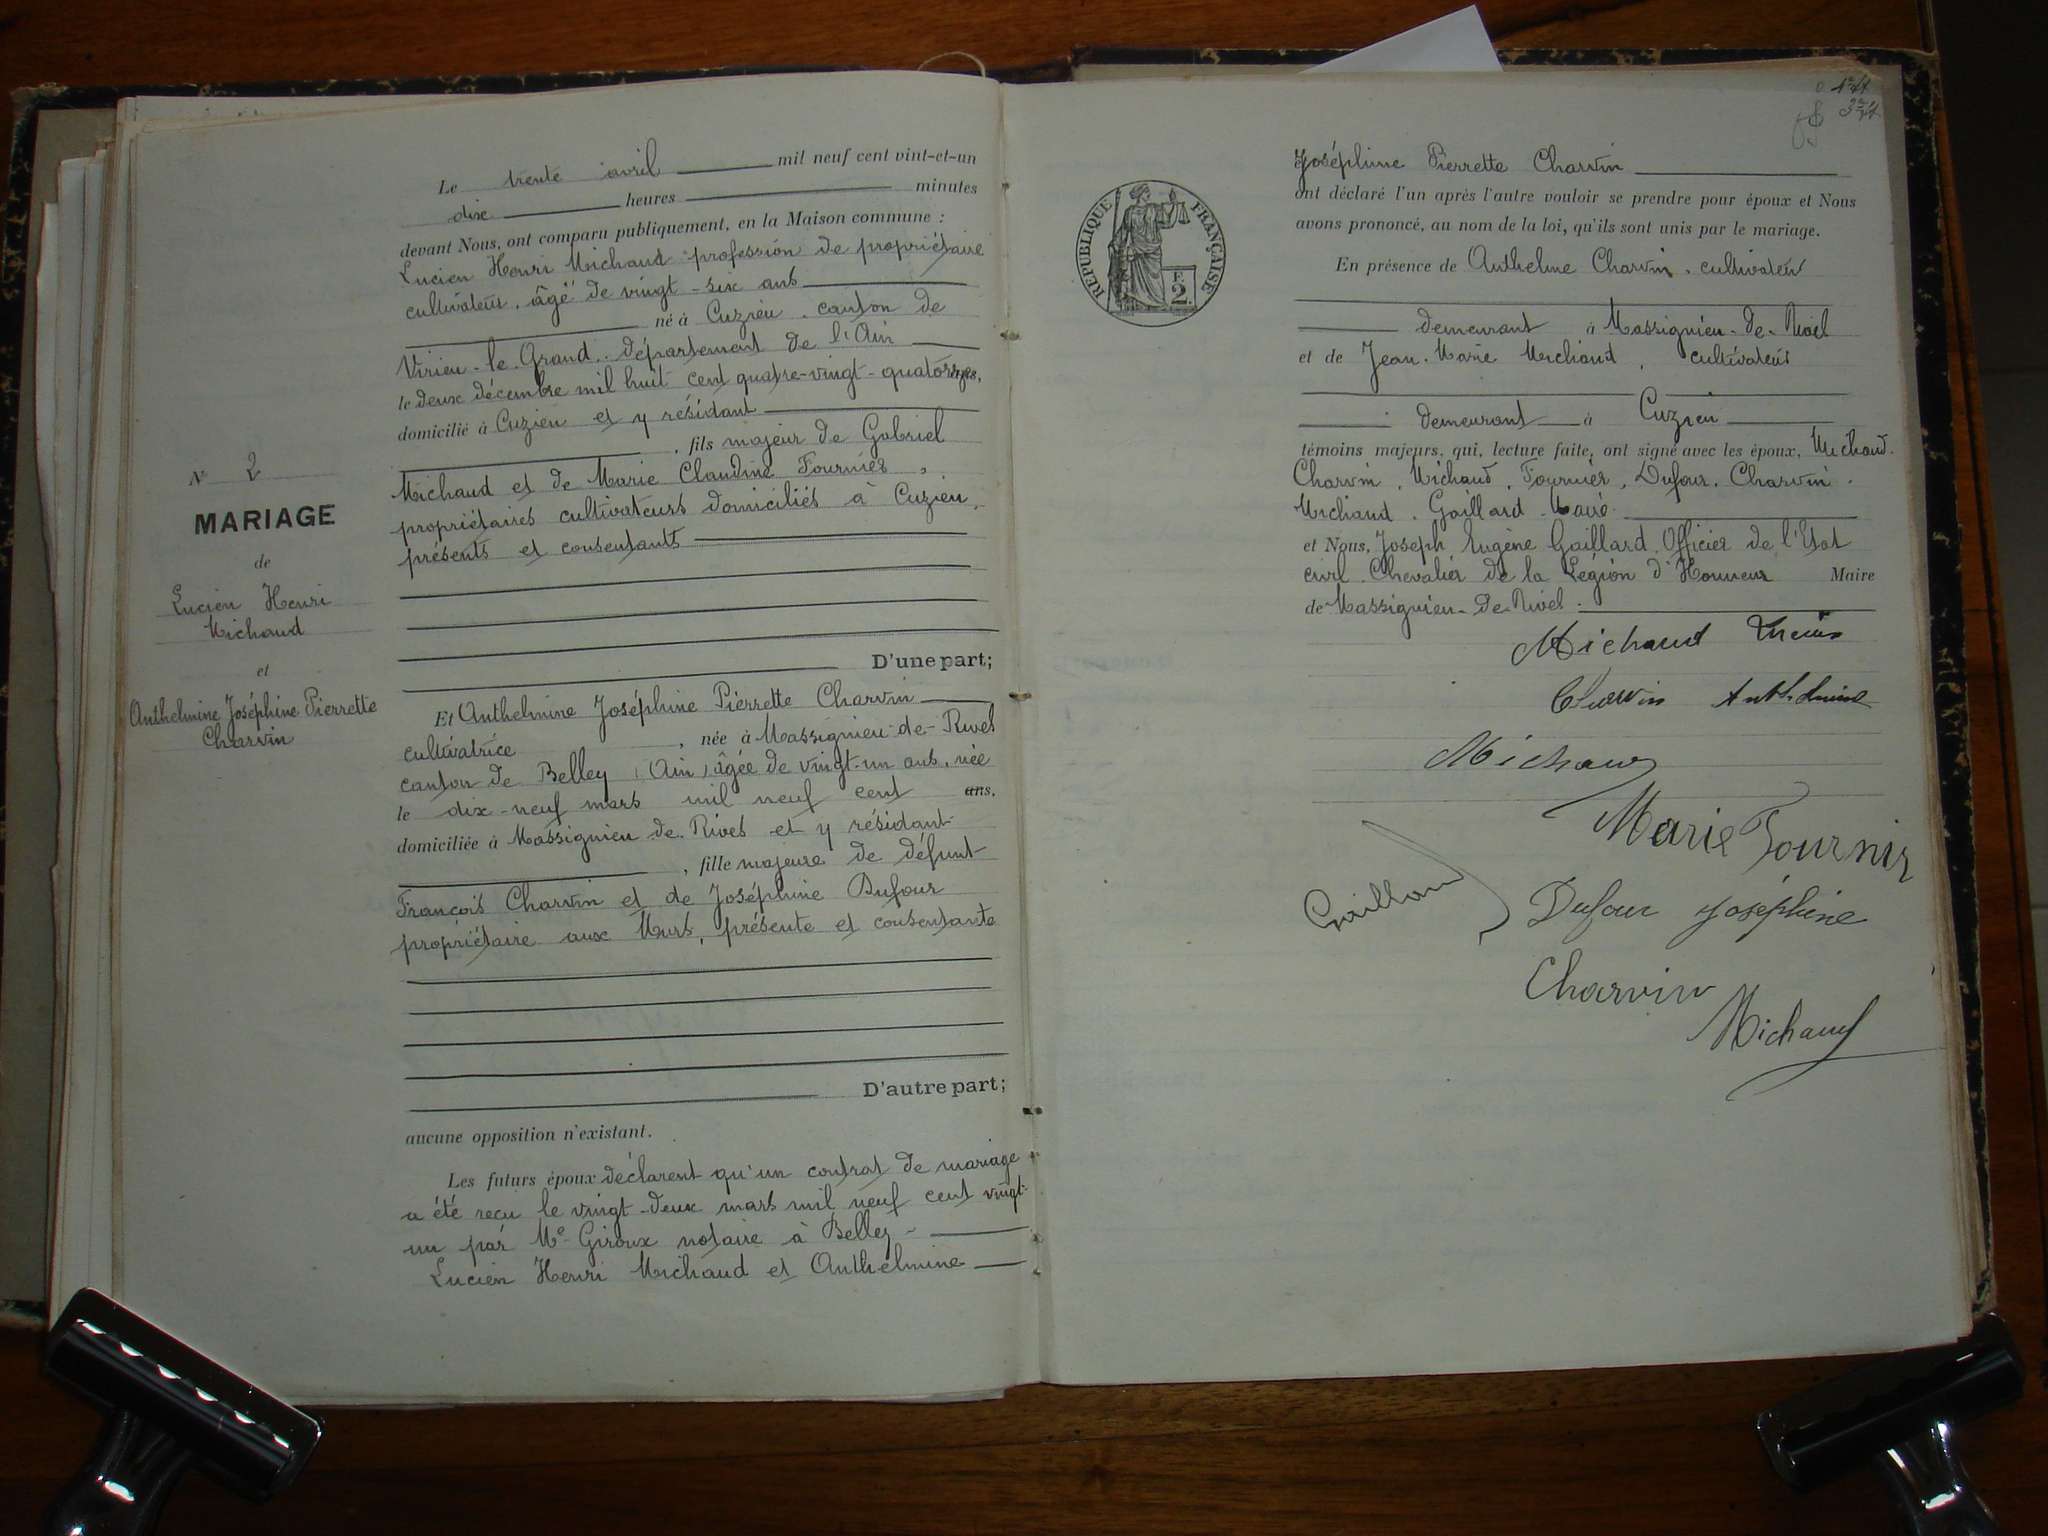 Le trente avril mil neuf cent vint-et-un
dix heures minutes
devant Nous, ont comparu publiquement, en la Maison commune :
Lucien Henri Michaud profession de propriétaire
cultivateur, âgé de vingt-six ans
né à Cuzieu, canton de
Virieu-le-Grand, département de l'Ain
le deux décembre mil huit cent quatre-vingt-quatorze ans,
domicilié à Cuzieu et y résidant
, fils majeur de Gabriel
Michaud et de Marie Claudine Fournier,
propriétaires cultivateurs domiciliés à Cuzieu,
présents et consentants
D'une part;
N° 2
MARIAGE
de
Lucien Henri
Michaud
et
Anthelmine Joséphine Pierrette
Charvin
Et Anthelmine Joséphine Pierrette Charvin
cultivatrice, née à Massignieu-de-Rives
canton de Belley (Ain) âgée de vingt-un ans, née
le dix-neuf mars mil neuf cent ans,
domiciliée à Massignieu de Rives et y résidant
, fille majeure de défunt
François Charvin et de Joséphine Dufour
propriétaire aux Murs, présente et consentante
D'autre part;
aucune opposition n'existant.
Les futurs époux déclarent qu'un contrat de mariage
a été reçu le vingt-deux mars mil neuf cent vingt-
un par Me Giroux notaire à Belley
Lucien Henri Michaud et Anthelmine
RÉPUBLIQUE FRANÇAISE
F.
2
Joséphine Pierrette Charvin
ont déclaré l'un après l'autre vouloir se prendre pour époux et Nous
avons prononcé, au nom de la loi, qu'ils sont unis par le mariage.
En présence de Anthelme Charvin, cultivateur
demeurant à Massignieu-de-Rives
et de Jean-Marie Michaud, cultivateur
demeurant à Cuzieu
témoins majeurs, qui, lecture faite, ont signé avec les époux, Michaud.
Charvin, Michaud, Fournier, Dufour, Charvin.
Michaud. Gaillard Maire
et Nous, Joseph Eugène Gaillard, Officier de l'Etat
civil Chevalier de la Légion d'Honneur Maire
de Massignieu-de-Rives.
Michaud Lucien
Charvin Anthelmine
Michaud
Marie Fournir
Gaillard
Dufour Joséphine
Charvin
Michaud